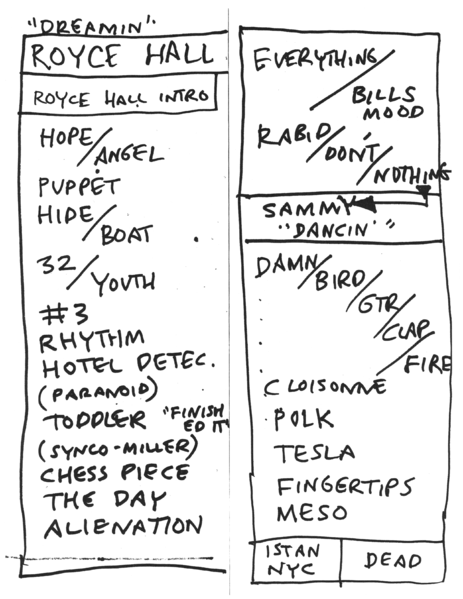 "DREAMIN"
ROYCE HALL
ROYCE HALL INTRO
HOPE/
ANGEL
PUPPET
HIDE/
BOAT
32/
YOUTH
#3
RHYTHM
HOTEL DETEC.
(PARANOID)
TODDLER "FINISH
ED IT"
(SYNCO-MILLER)
CHESS PIECE
THE DAY
ALIENATION
EVERYTHING/
BILLS
MOOD
RABID/
DON'T/
NOTHING
SAMMY
"DANCIN'"
DAMN/
BIRD/
GTR/
CLAP/
FIRE
CLOISONNE
POLK
TESLA
FINGERTIPS
MESO
ISTAN
NYC
DEAD